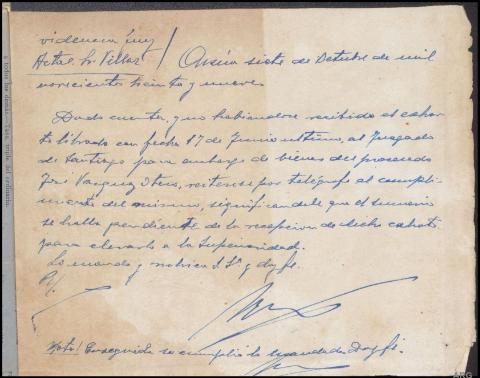 videncia Juez
Actal. Sr Villar / Arzúa siete de Octubre de mil
novecientos treinta y nueve.
Dada cuenta, y no habiendose recibido el exhor
to librado con fecha 17 de Junio ultimo, al Juzgado
de Santiago para embargo de bienes del procesado
José Vazquez, reiterese por telégrafo el cumpli-
miento del mismo, significandole que el sumario
se halla pendiente de la recepcion de dicho exhorto
para elevarlo a la Superioridad.
Lo mando y rubrica S. Sª doy fe.
Nota! Enseguida se cumplió lo mandado. Doy fe.
ARG